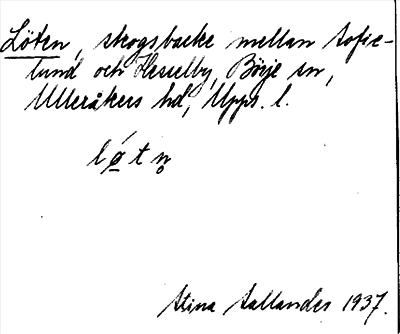 Löten, skogsbacke mellan Sofie-
lund och Hesselby, Börje sn,
Ulleråkers hd, Upps. l.
lǿ̲tn̥
Stina Sallander 1937.